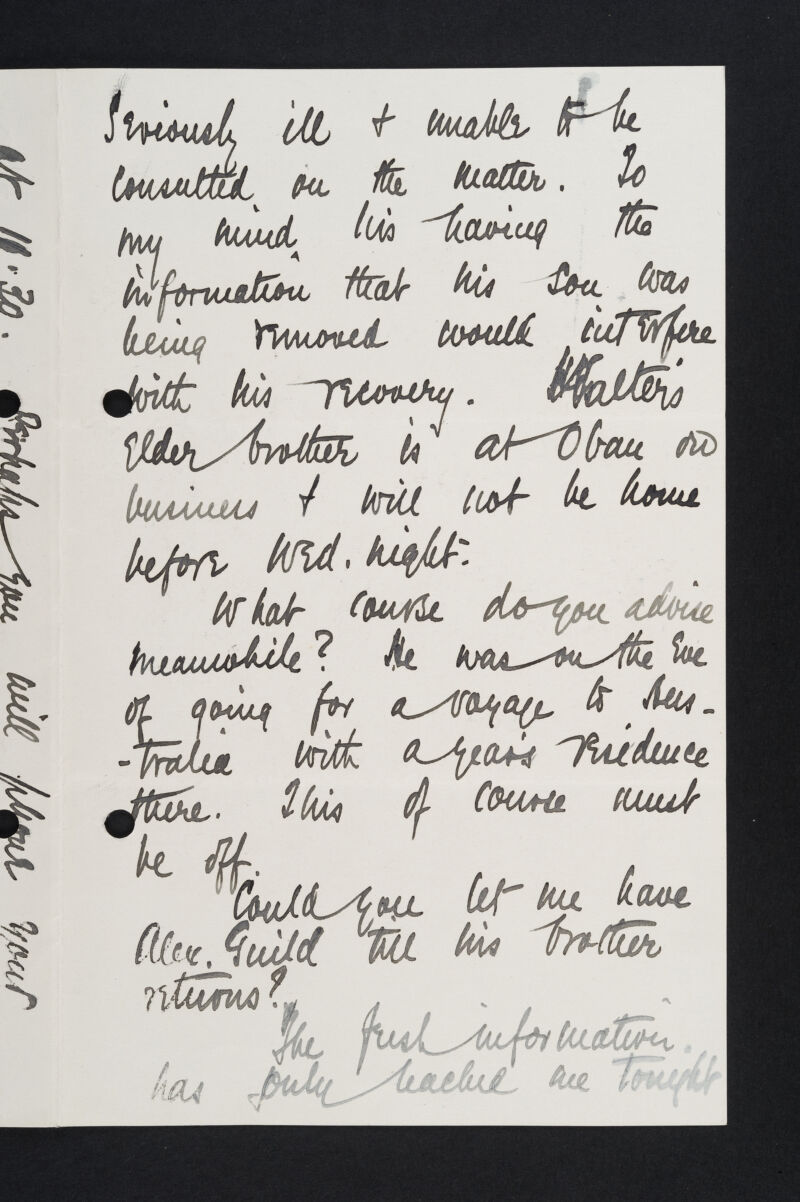 Seriously ill & unable to be
consulted on the matter. To
my mind, his having the
information that his son was
being removed would interfere
with his recovery. Walter's
Elder brother is at Oban on
business & will not be home
before Wed. night.
What course do you advise
meanwhile? He was on the Eve
of going for a voyage to Aus-
-tralia with a year's residence
there. This of course must
be off.
Could you let me have
Alex. Guild till his brother
returns?
The fresh information
has only reached me tonight
at 10.30. Perhaps you will phone your